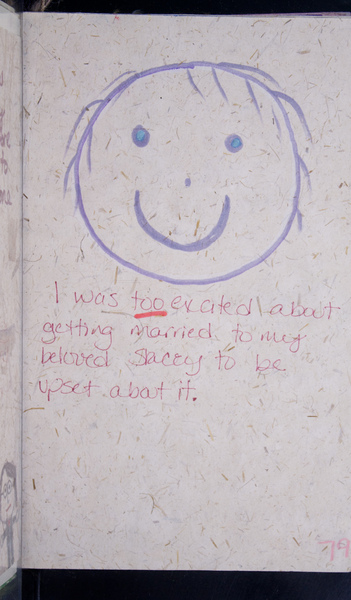 I was too excited about
getting married to my
beloved Stacey to be
upset about it.
79